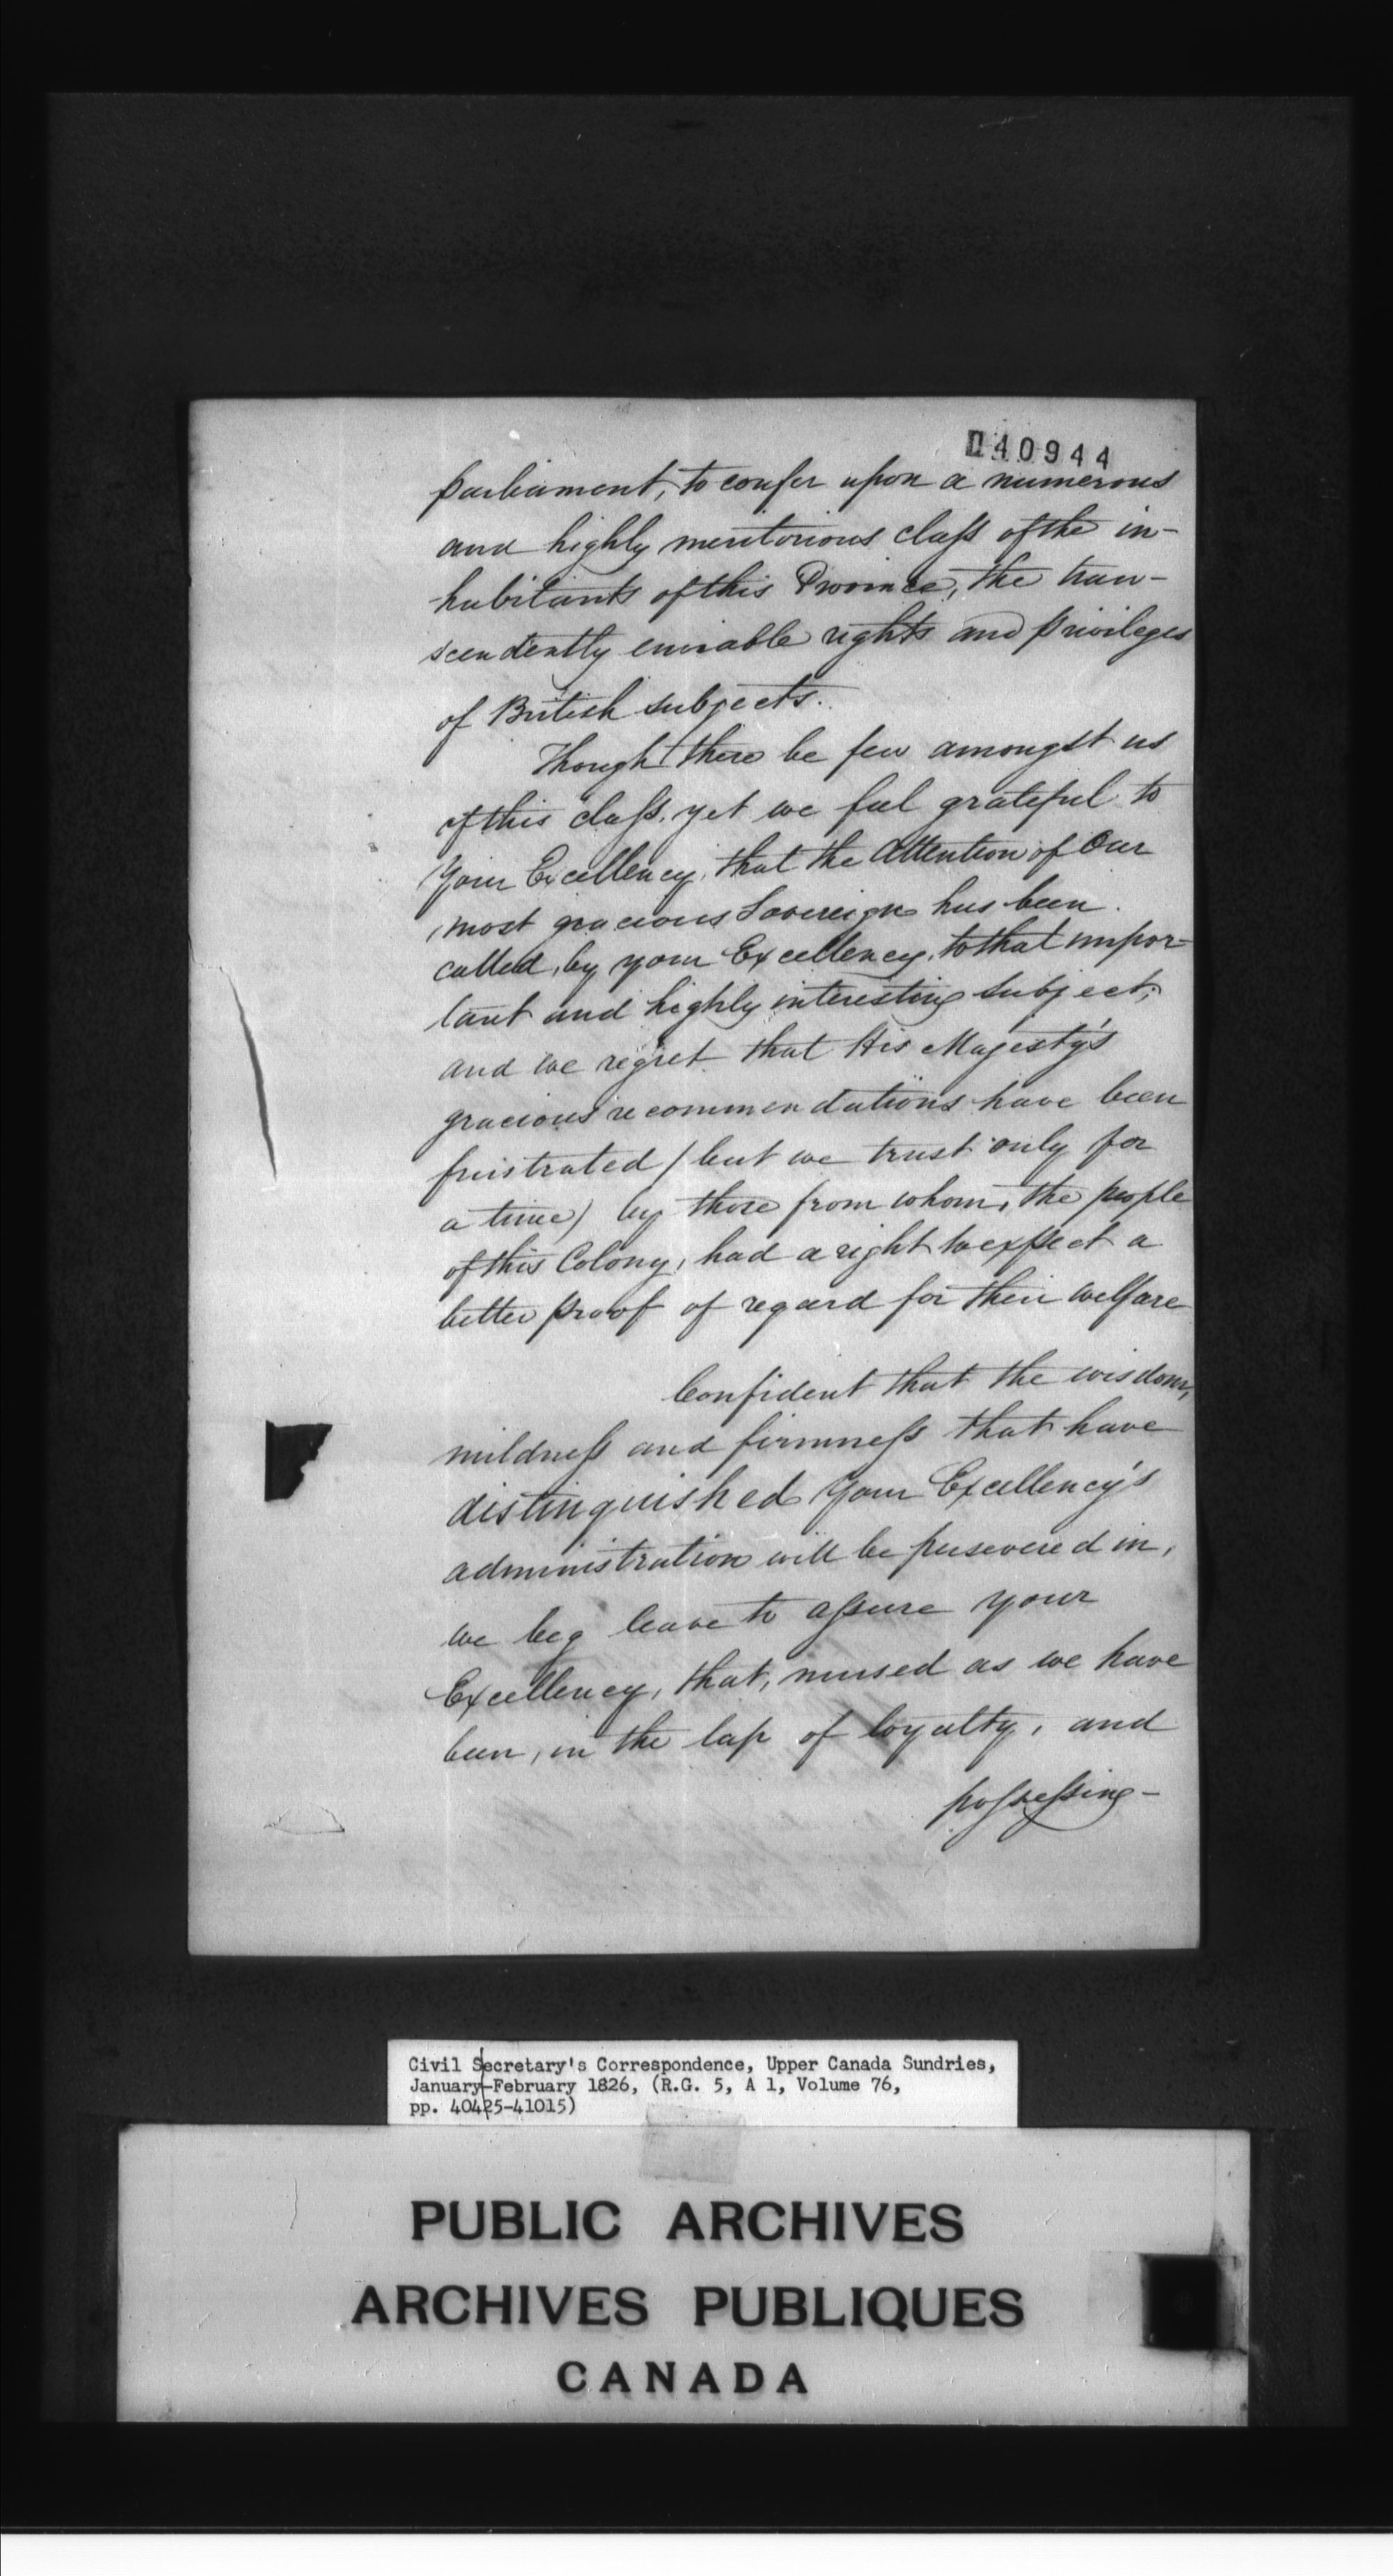 040944
parliament, to confer upon a numerous
and highly meritorious class of the in-
habitants of this Province, the tran-
scendently enviable rights and privileges
of British subjects.
Though there be few amongst us
of this class, yet we feel grateful to
Your Excellency, that the Attention of Our
most gracious Sovereign has been
called, by your Excellency, to that impor-
tant and highly interesting subject;
and we regret that His Majesty's
gracious recommendations have been
frustrated (but we trust only for
a time) by those from whom, the people
of this Colony, had a right to expect a
better proof of regard for their welfare
Confident that the wisdom,
mildness and firmness that have
distinguished Your Excellency's
administration will be persevered in,
we beg leave to assure your
Excellency, that, nursed as we have
been, in the lap of loyalty, and
possessing-
Civil Secretary's Correspondence, Upper Canada Sundries,
January-February 1826, (R.G. 5, A 1, Volume 76,
pp. 40425-41015)
PUBLIC ARCHIVES
ARCHIVES PUBLIQUES
CANADA